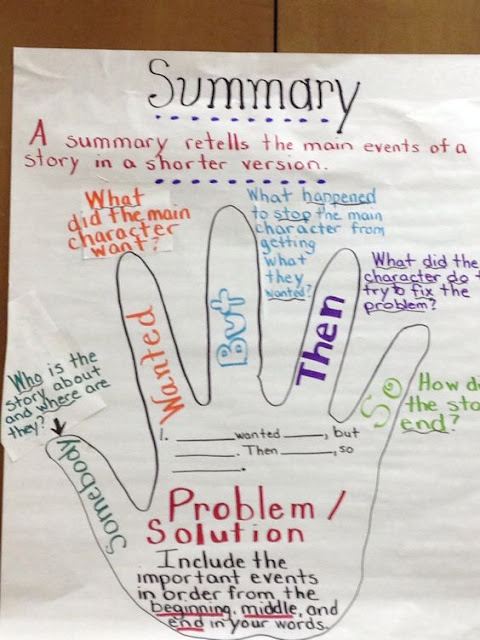 Summary
A summary retells the main events of a
story in a shorter version.
What
did the main
character
want?
What happened
to stop the main
character from
getting
what
they
wanted?
What did the
character do t
try to fix the
problem?
Who is the
story about
and where are
they?
How di
the sto
end?
Somebody
Wanted
But
Then
So
1. ______ wanted _____, but
________. Then _____, so
________.
Problem /
Solution
Include the
important events
in order from the
beginning, middle, and
end in your words.